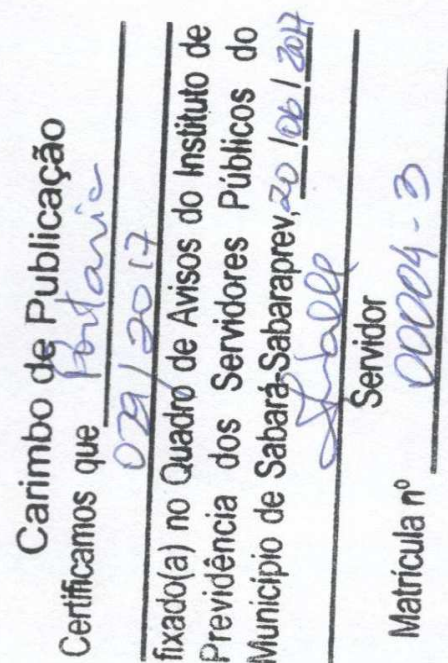 Carimbo de Publicação
Certificamos que Portaria
079/2017
fixado(a) no Quadro de Avisos do Instituto de
Previdência dos Servidores Públicos do
Município de Sabará-Sabaraprev, 20/06/2017
Servidor
Matrícula nº 00004-3